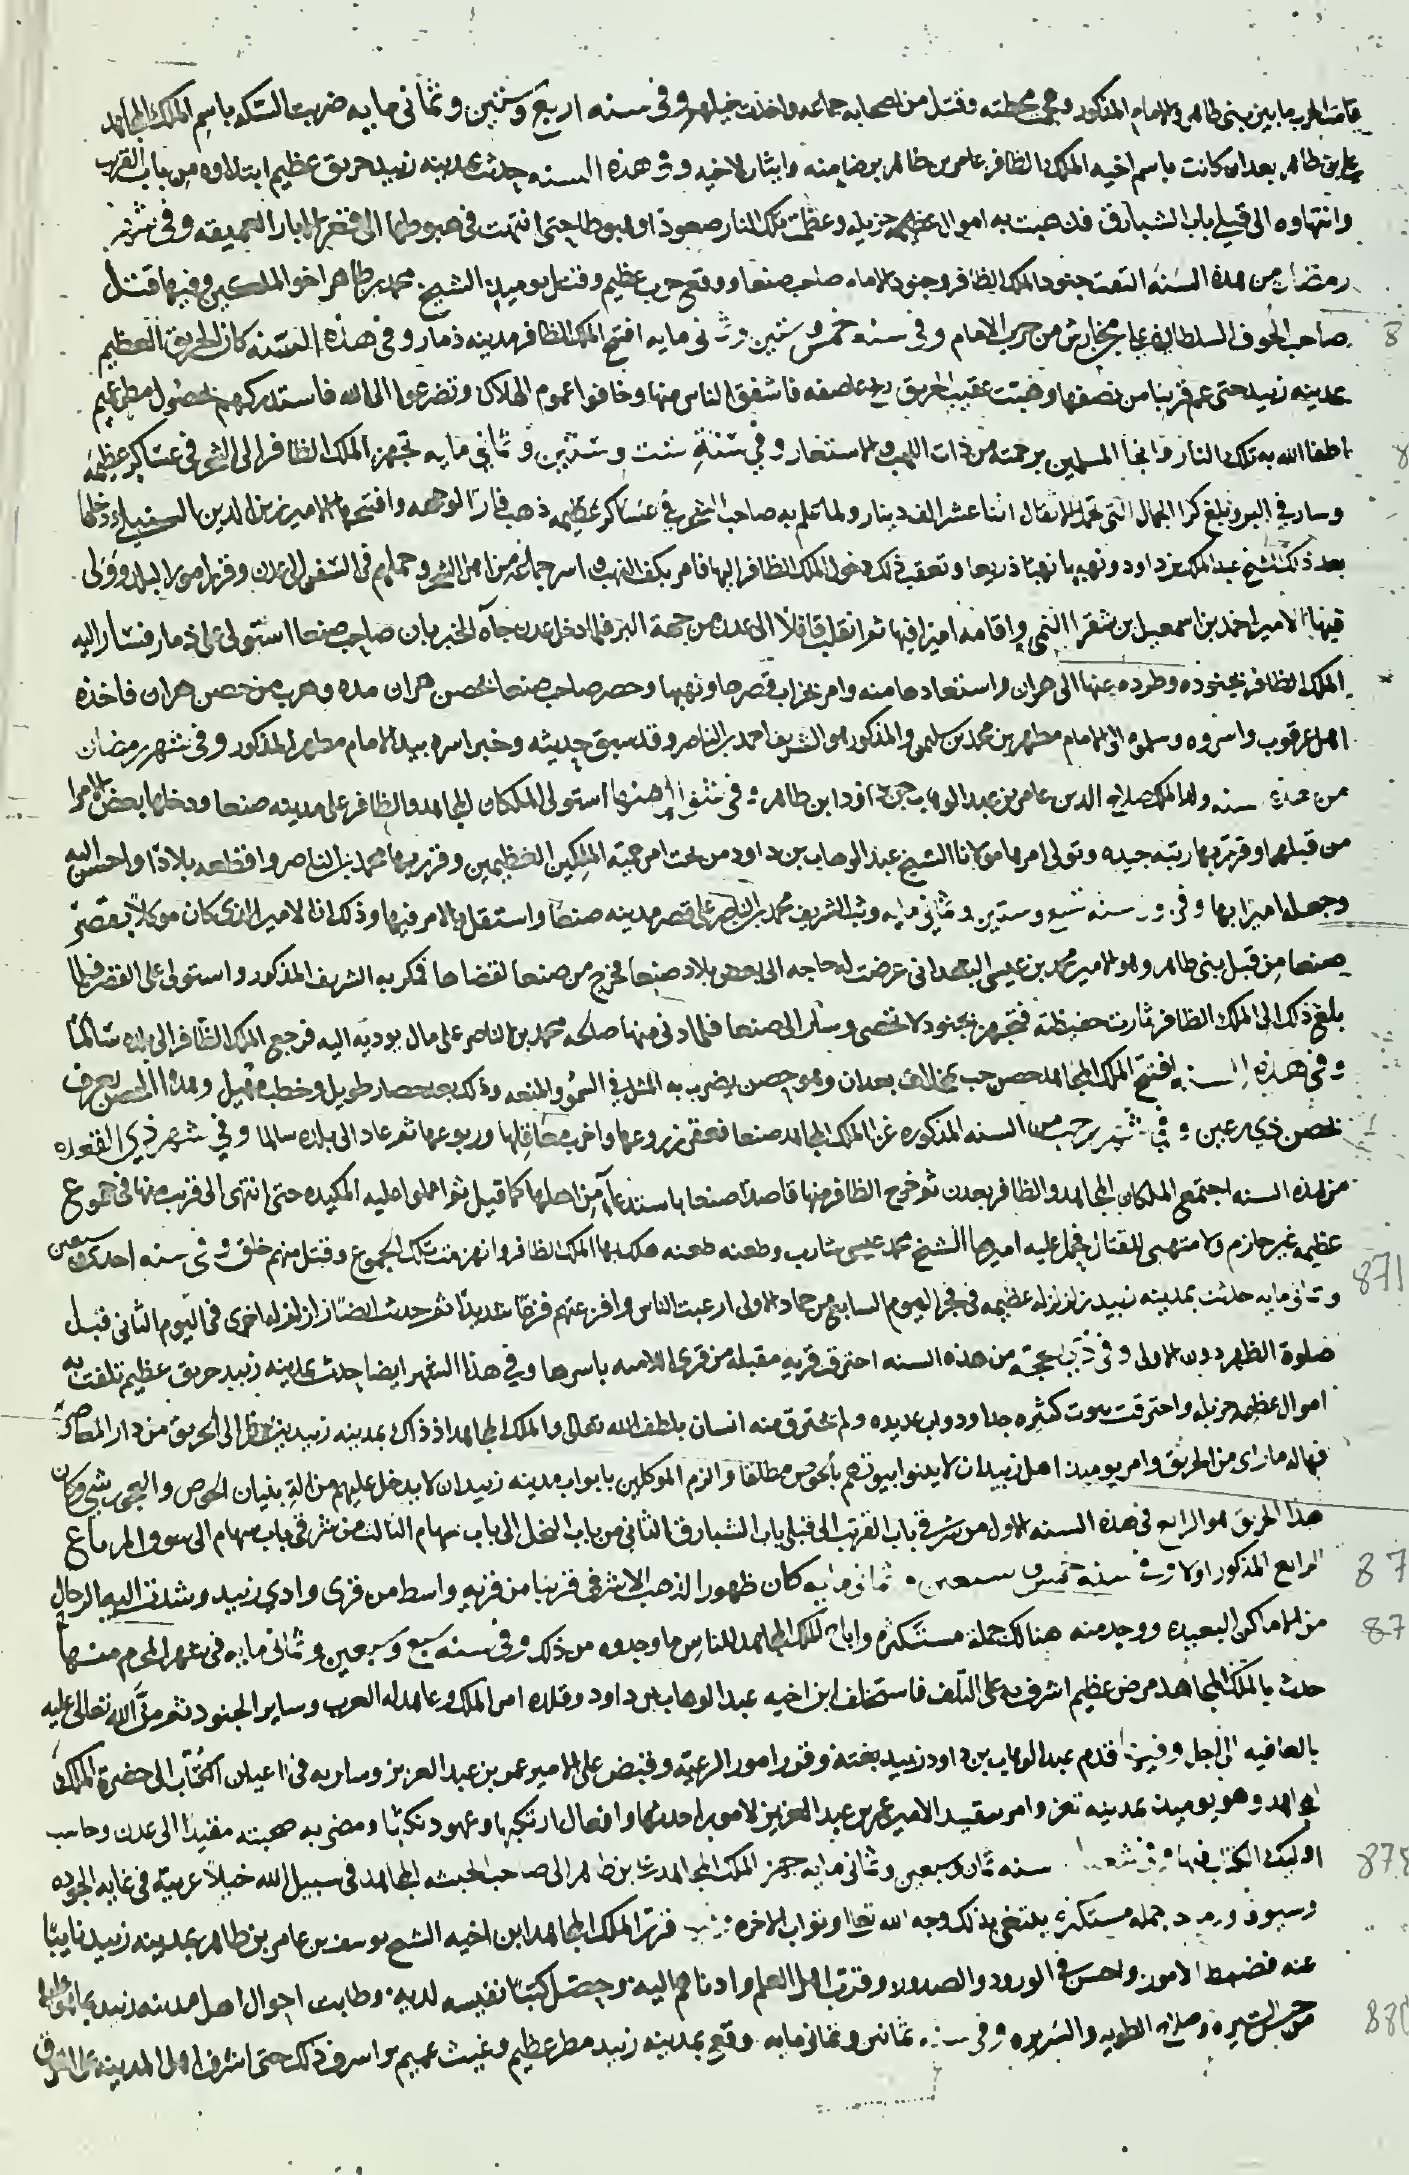 قامت الحرب ما بين بني طاهر والامام المذكور وقتل من اصحابه جماعه واخذت خيلهم وفي سنه اربع وستين وثماني مايه ضربت السكه باسم الملك المجاهد
علي بن طاهر بعد ان كانت باسم اخيه الملك الظافر عامر بن طاهر برضا منه وايثار لاخيه وفي هذه السنه حدث بمدينه زبيد حريق عظيم ابتداوه من باب القرتب
وانتهاوه الى قبلي باب الشبارق فذهبت به اموال عظيمه جزيله وعظمت تلك النار صعودا وهبوطا حتى انتهت في هبوطها الى قعر الابار العميقه وفي شهر
رمضان من هذه السنه التقت جنود الملك الظافر وجنود الامام صاحب صنعا ووقع حرب عظيم وقتل يوميذ الشيخ محمد بن طاهر اخو الملكين وفيها قتل
صاحب الجوف السلطان من حرب الامام وفي سنه خمس وستين وثماني مايه افتتح الملك الظافر مدينه ذمار وفي هذه السنه كان الحريق العظيم
بمدينه زبيد حتى عم قريبا من نصفها وهبت عقيب الحريق ريح عاصفه فاشفق الناس منها وخافوا عموم الهلاك وتضرعوا الى الله فاستدركهم بحصول مطر عميم
اطفا الله به تلك النار وانجا المسلمين برحمته من ذات اللهب والاستعار وفي سنة ست وستين وثماني مايه تجهز الملك الظافر الى الشحر في عساكر عظيمه
وسار في البر وبلغ كرا الجمال التي تحمل الاثقال اثنا عشر الف دينار ولما علم به صاحب الشحر في عساكر عظيمه ذهب فارا لوجهه وافتتحها الامير زين الدين السنبلي ودخلها
بعد ذلك الشيخ عبد الملك بن داود ونهبها نهبا ذريعا وتعقب ذلك دخول الملك الظافر اليها فامر بكف النهب واسر جماعه من اهل الشحر وحملهم في السفن الى عدن وقرر امور البلد وولى
فيها الامير احمد بن اسمعيل بن سنقر واقامه اميرا فيها ثم انقلب قافلا الى عدن من جهة البر فلما دخل عدن جاه الخبر بان صاحب صنعا استولى على ذمار فسار اليه
الملك الظافر بجنوده وطرده عنها الى هران واستعادها منه وامر بخراب قصرها ونهبها وحصر صاحب صنعا بحصن هران مده وهرب من حصن هران فاخذه
اهل عرقوب واسروه وسلموه الى الامام مطهر بن محمد بن سليمن والمذكور هو الشريف احمد بن الناصر وقد سبق حديثه وخبر اسره بيد الامام مطهر المذكور وفي شهر رمضان
من هذه سنه ولد الملك صلاح الدين عامر بن عبد الوهاب بن داود ابن طاهر وفي منها استولى الملكان المجاهد والظافر على مدينه صنعا ودخلها بعض الامرا
من قبلهما وقرر بها رتبه جيده وتولى امرها مولانا الشيخ عبد الوهاب بن داود من تحت امر عميه الملكين العظيمين وقرر بها محمد بن الناصر واقطعه بلادا واحسن اليه
وجعله اميرا بها وفي سنه تسع وستين وثماني مايه وثب الشريف محمد بن الناصر على قصر مدينه صنعا واستقل بالامر فيها وذلك ان الامير الذي كان موكلا بقصر
صنعا من قبل بني طاهر وهو الامير محمد بن عيسى البعداني عرضت له حاجه الى بعض بلاد صنعا فخرج من صنعا لقضاها فمكر به الشريف المذكور واستولى على القصر فلما
بلغ ذلك الى الملك الظافر ثارت حفيظته فتجهز بجنود لا تحصى وسار الى صنعا فلما دنى منها صلحه محمد بن الناصر على مال يوديه اليه فرجع الملك الظافر الى بلده سالما
وفي هذه السنه افتتح الملك المجاهد حصن حب بمخلاف بعدان وهو حصن يضرب به المثل في السمو والمنعه وذلك بعد حصار طويل وخطب مهيل وهذا الحصن يعرف
بحصن ذي رعين وفي شهر رجب من السنه المذكوره غزا الملك المجاهد صنعا فعقر زروعها واخرب معاقلها وربوعها ثم عاد الى بلده سالما وفي شهر ذي القعده
من هذه السنه اجتمع الملكان المجاهد والظافر بعدن ثم خرج الظافر منها قاصدا صنعا باستدعا من اهلها كما قيل ثم اعملوا عليه المكيده حتى انتهى الى قريب منها في جموع
عظيمه غير حازم ولا متهيى للقتال فحمل عليه اميرها الشيخ محمد عيسى شارب وطعنه طعنه هلك بها الملك الظافر وانهزمت تلك الجموع وقتل منهم خلق وفي سنه احدى وسبعين
وثماني مايه حدثت بمدينه زبيد زلزله عظيمه في فجر اليوم السابع من جماد الاولى ارعبت الناس وافزعتهم فزعا شديدا ثم حدث ايضا زلزله اخرى في اليوم الثاني قبل
صلوة الظهر دون الاولى وفي ذي الحجه من هذه السنه احترق قريه مقبله من قرى اللاميه باسرها وفي هذا الشهر ايضا حدث بمدينه زبيد حريق عظيم تلفت به
اموال عظيمه جزيله واحترقت بيوت كثيره جدا ودواب عديده ولم يحترق منه انسان بلطف الله تعالى والملك المجاهد اذ ذاك بمدينه زبيد ينظر الى الحريق من دار
فهاله ما راى من الحريق وامر يوميذ اهل زبيد ان لا يبنوا بيوتهم بالخوص مطلقا والزم الموكلين بابواب مدينه زبيد ان لا يدخل عليهم من الة بنيان الخوص والعجور شي وكان
هذا الحريق هو الرابع في هذه السنه الاول من شرقي باب القرتب الى قبلي باب الشبارق الثاني من باب النخل الى باب سهام الثالث من شرقي باب سهام الى سوق المرباع
الرابع المذكور اولا وفي سنه خمس وسبعين وثماني مايه كان ظهور الذهب الاشرفي قريبا من قريه واسط من قرى وادي زبيد وشدت اليها الرحال
من الاماكن البعيده ووجد منه هنالك جملة مستكثره واباح الملك المجاهد للناس ما وجدوه من ذلك وفي سنه سبع وسبعين وثماني مايه في شهر المحرم منها
حدث بالملك المجاهد مرض عظيم اشرف به على التلف فاستخلف ابن اخيه عبد الوهاب بن داود وقلده امر الملك وعاهد له العرب وساير الجنود ثم من الله تعالى عليه
بالعافيه الى اجل وفيها قدم عبد الوهاب بن داود زبيد بغتة وقرر امور الرعيه وقبض على الامير عمر بن عبد العزيز وسار به في اعيان الكتاب الى حضرة الملك
المجاهد وهو يوميذ بمدينه تعز وامر بتقييد الامير عمر بن عبد العزيز لامور احدثها وافعال ارتكبها وعهود نكثها ومضى به صحبته مقيدا الى عدن وحاسب
اوليك الكتاب فيها وفي سنه ثمان وسبعين وثماني مايه جهز الملك المجاهد بن طاهر الى صاحب الحبشه المجاهد في سبيل الله خيلا عربية في غايه الجوده
وسيوف جمله مستكثره يبتغي بذلك وجه الله تعالى وثواب الاخره وفيها قرر الملك المجاهد ابن اخيه الشيخ يوسف بن عامر بن طاهر بمدينه زبيد نايبا
عنه فضبط الامور واحسن في الورود والصدور وقرب اهل العلم وادناهم اليه وحصل كتبا نفيسه لديه وطابت احوال اهل مدينه زبيد
من حسن السيره وصلاح الطويه والسريره وفي سنه ثمانين وثماني مايه وقع بمدينه زبيد مطر عظيم وغيث عميم واسرف ذلك حتى اشرف اهل المدينه على الغرق
871
87
87
878
880